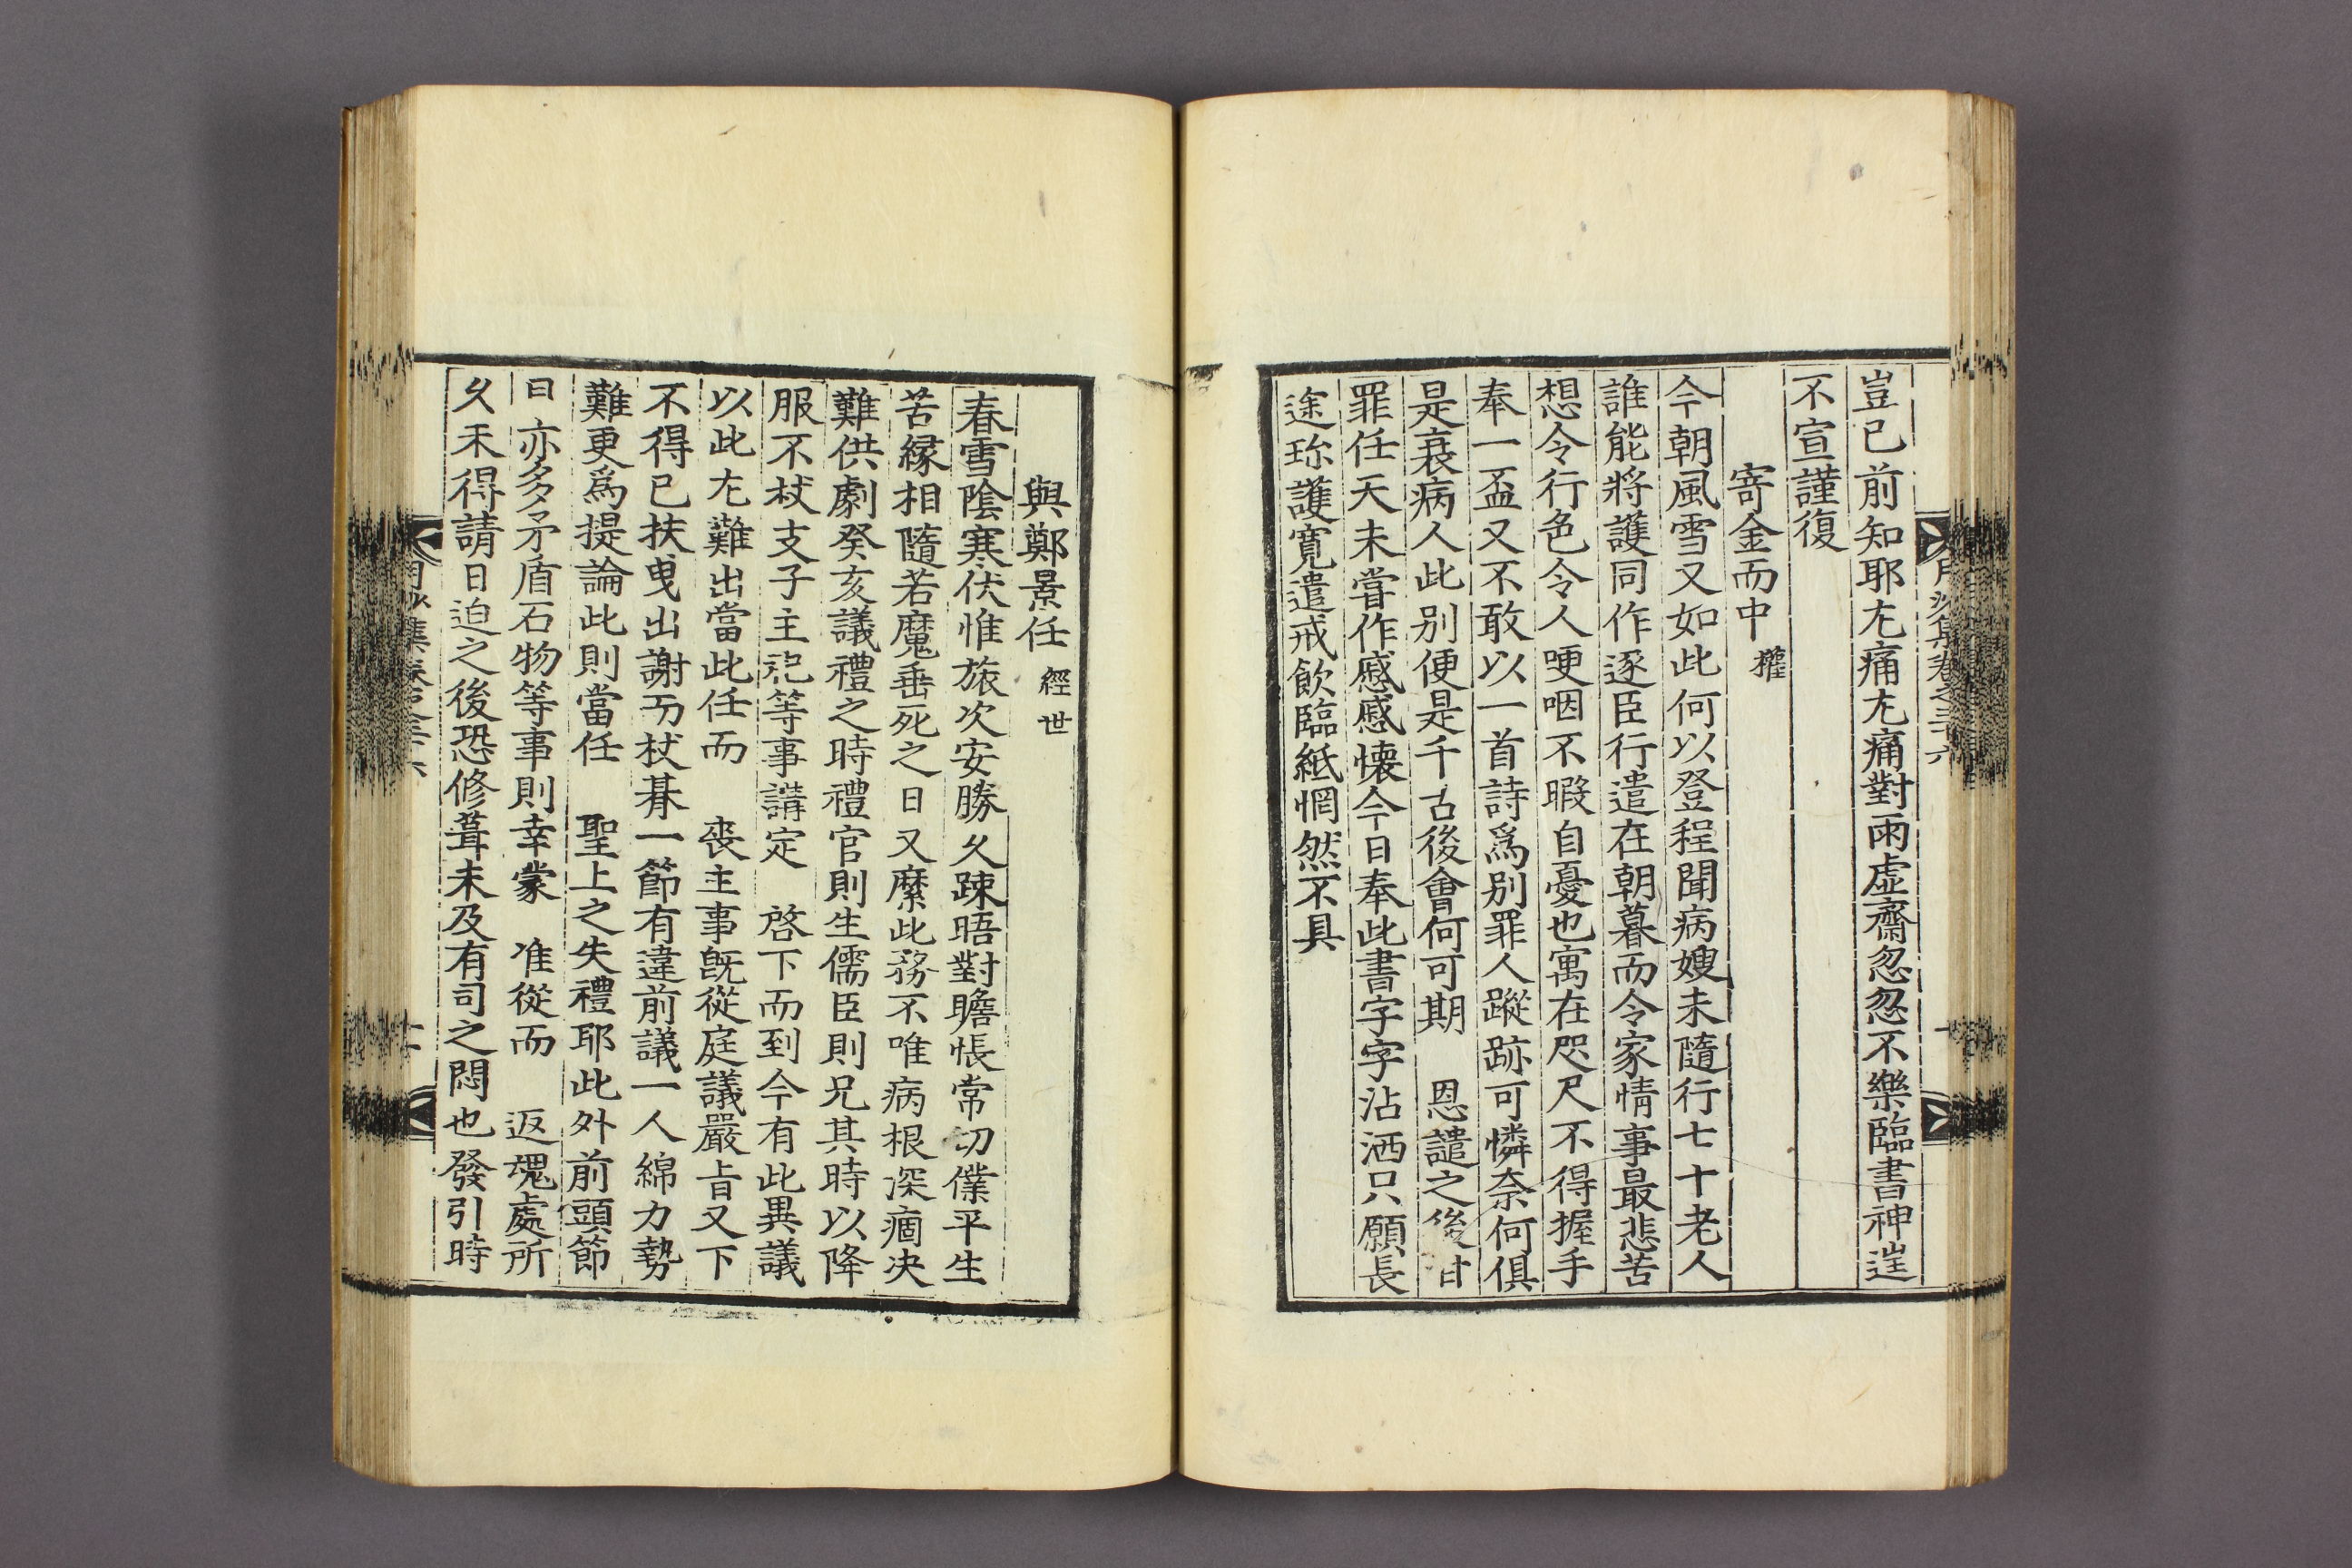 月沙集卷之三十六
豈已前知耶尤痛尤痛對雨虛齋忽忽不樂臨書神𨓏
不宣謹復
寄金而中 權
今朝風雪又如此何以登程聞病嫂未隨行七十老人
誰能將護同作逐臣行遣在朝暮而令家情事最悲苦
想令行色令人哽咽不暇自憂也寓在咫尺不得握手
奉一盃又不敢以一首詩爲别罪人蹤跡可憐奈何俱
是衰病人此别便是千古後會何可期 恩譴之後甘
罪任天未嘗作慼慼懷今日奉此書字字沾洒只願長
途珎護寛遣戒飮臨紙惘然不具
與鄭景任 經世
春雪陰寒伏惟旅次安勝久踈晤對瞻悵常切僕平生
苦緣相隨若魔垂死之日又縻此務不唯病根深痼决
難供劇癸亥議禮之時禮官則生儒臣則兄其時以降
服不杖支子主祀等事講定 啓下而到今有此異議
以此尤難出當此任而 喪主事旣從庭議嚴旨又下
不得已扶曵出謝而杖朞一節有違前議一人綿力勢
難更爲提論此則當任 聖上之失禮耶此外前頭節
日亦多矛盾石物等事則幸蒙 准從而 返魂處所
久未得請日迫之後恐修葺未及有司之悶也發引時